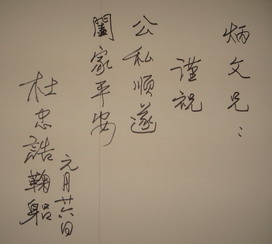 炳文兄：
謹祝
公私順遂
闔家平安
杜忠誥鞠躬
元月廿六日